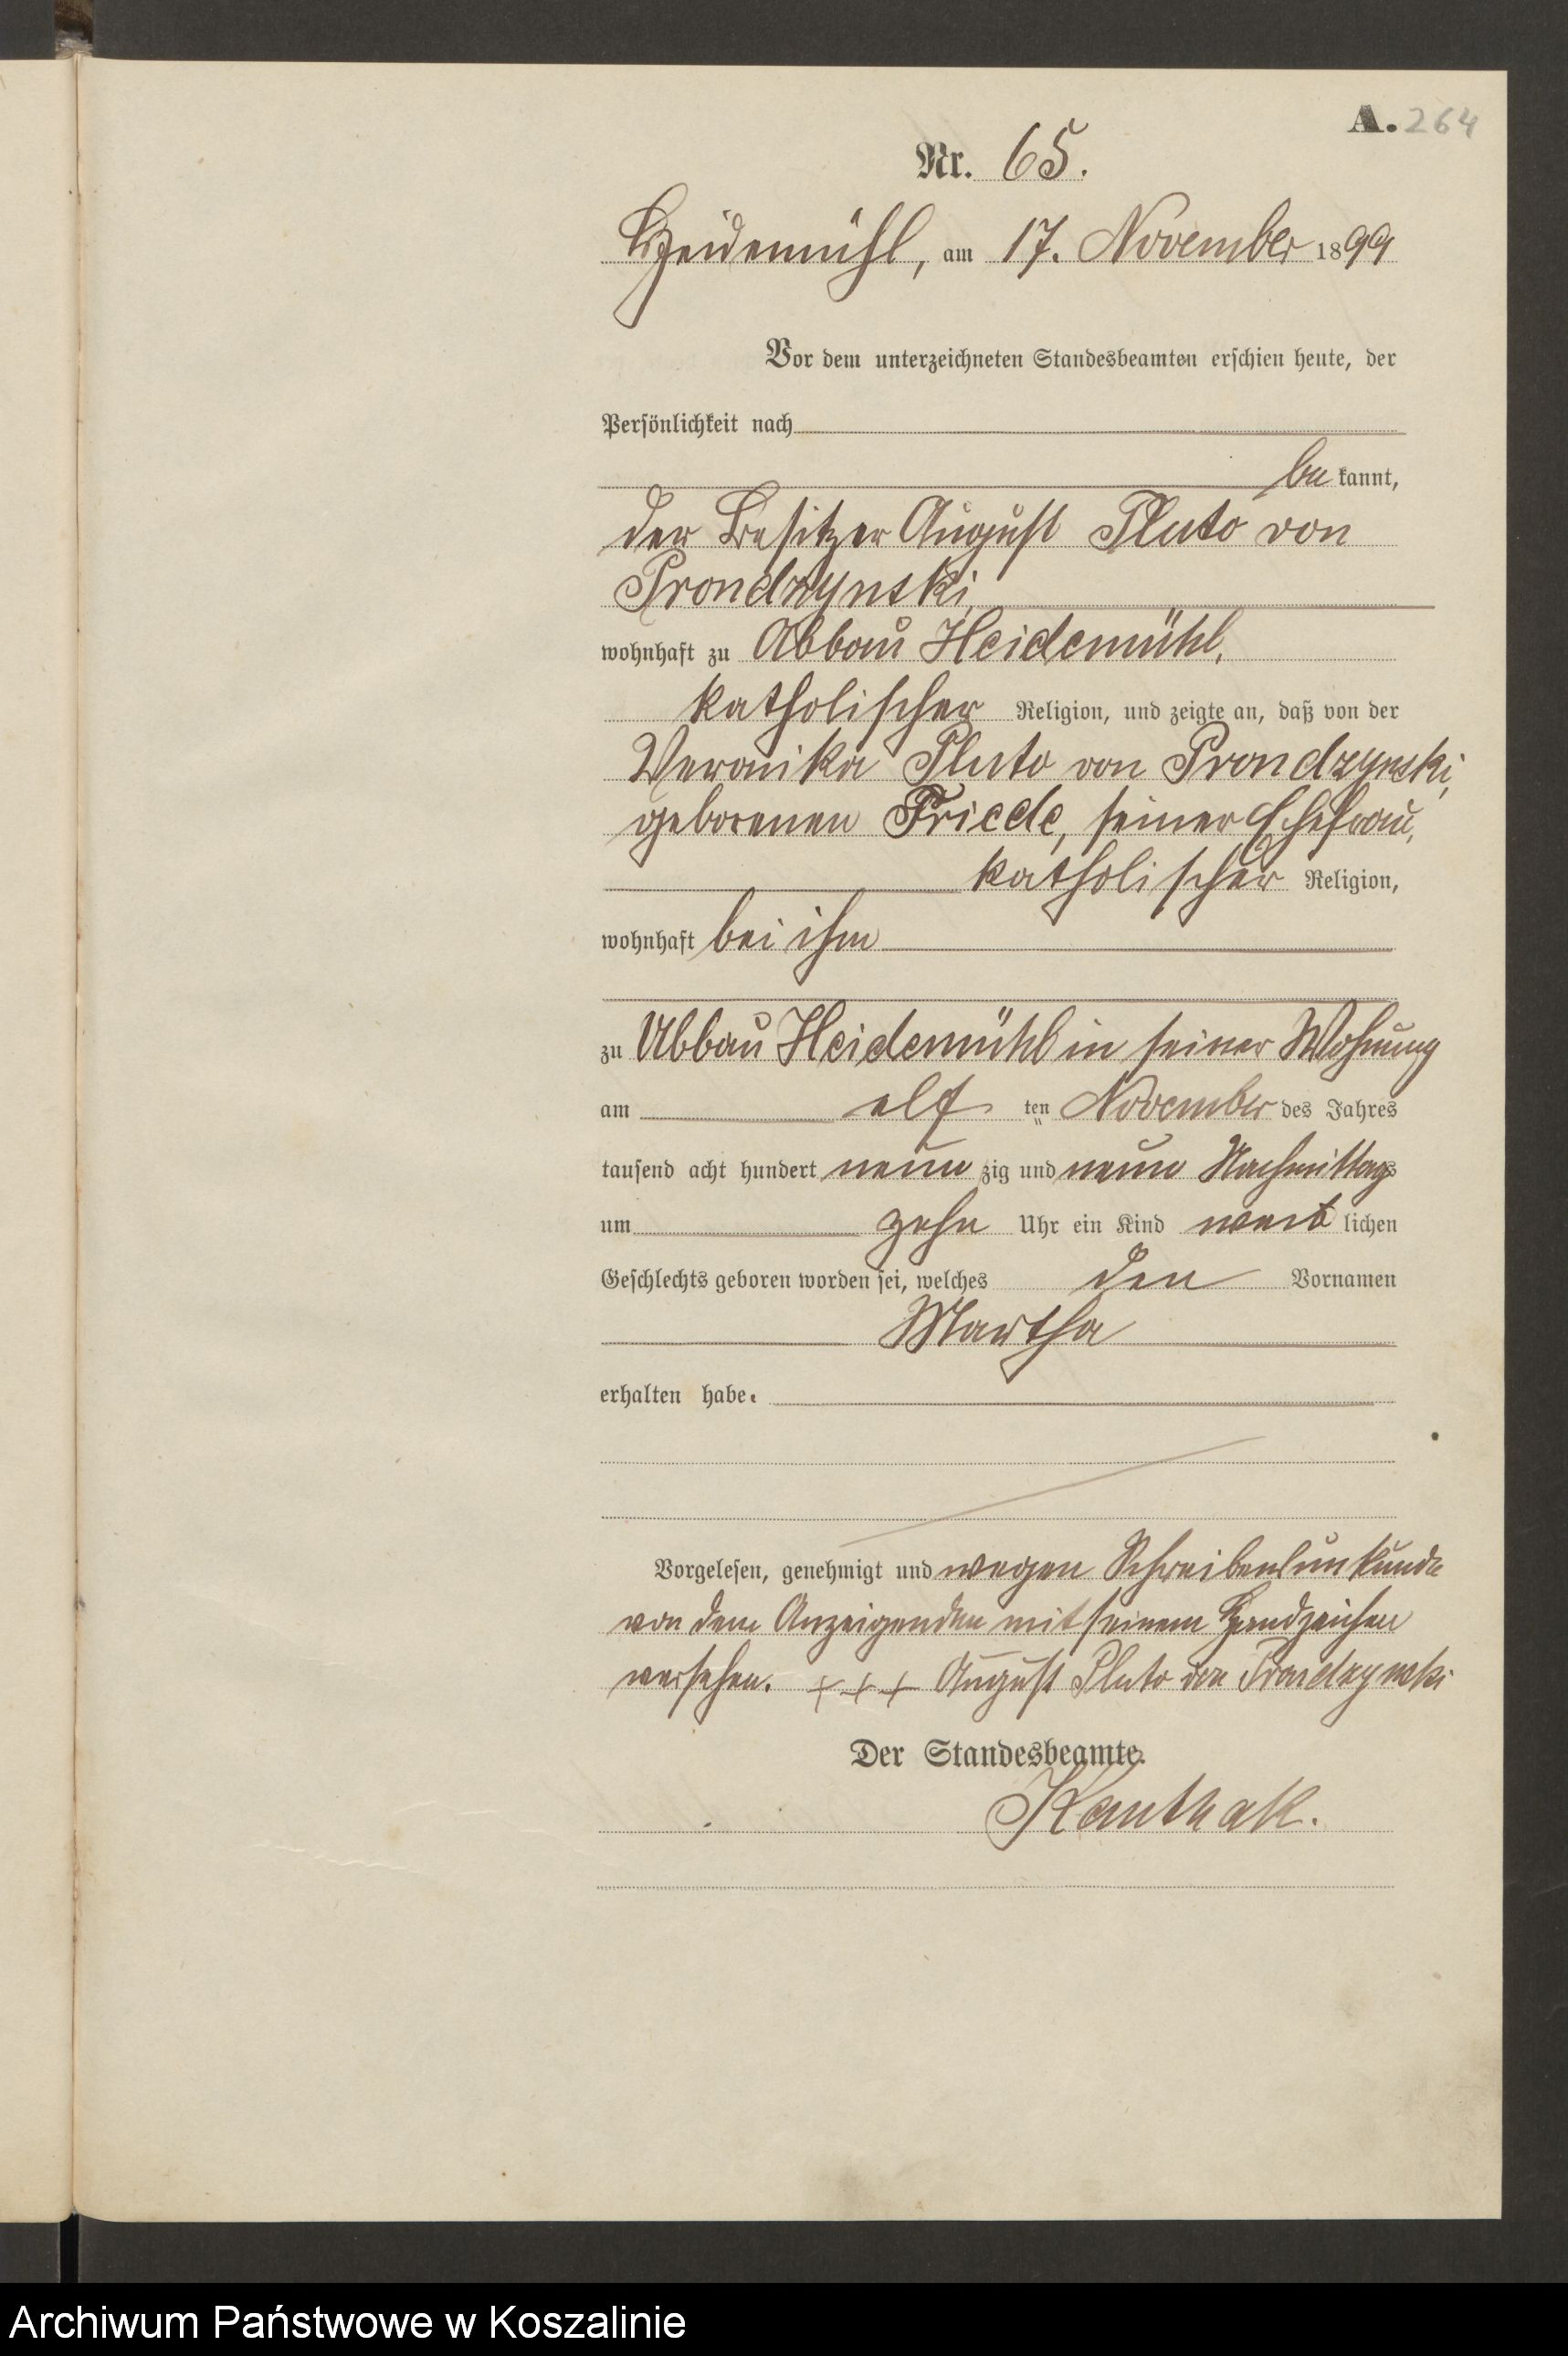 A. 264
Nr. 65.
Heidemühl, am 17. November 1899
Vor dem unterzeichneten Standesbeamten erschien heute, der
Persönlichkeit nach
be kannt,
der Besitzer August Pluto von
Prondzynski,
wohnhaft zu Abbau Heidemühl,
katholischer Religion, und zeigte an, daß von der
Veronika Pluto von Prondzynski,
geborenen Friede, seiner Ehefrau,
katholischer Religion,
wohnhaft bei ihm
zu Abbau Heidemühl in seiner Wohnung
am elf ten November des Jahres
tausend acht hundert neun zig und neun Nachmittags
um zehn Uhr ein Kind weib lichen
Geschlechts geboren worden sei, welches den Vornamen
Martha
erhalten habe.
Vorgelesen, genehmigt und wegen Schreibensunkunde
von dem Anzeigenden mit seinem Handzeichen
versehen. +++ August Pluto von Prondzynski
Der Standesbeamte.
Kauthak.
Archiwum Państwowe w Koszalinie